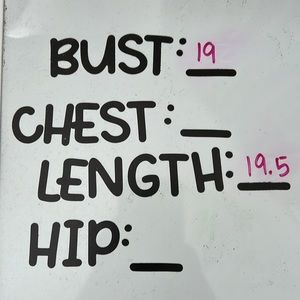 BUST: 19
CHEST: __
LENGTH: 19.5
HIP: __